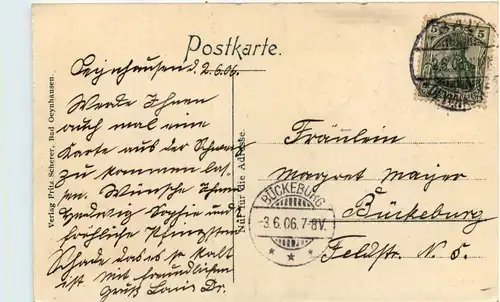 Postkarte.
Oeynhausen d. 2.6.06.
Werde Ihnen
auch mal eine
Karte aus der Schweiz
zu kommen las-
sen. Wünsche Ihnen
Hedwig Sophie und
fröhliche Pfingsten
Schade das es so kalt
ist. Mit freundlichen
Gruß Louis Dr.
Verlag Fritz Scherer, Bad Oeynhausen.
Nur für die Adresse.
5 5
2.6.06
OEYNHAUSEN
Fräulein
Magret Mayer
Bückeburg
Feldstr. N. 5.
BÜCKEBURG
-3.6.06.7-8V.